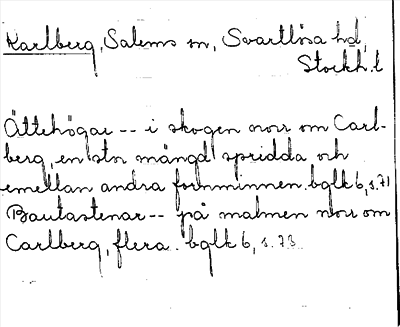 Karlberg, Salems sn, Svartlösa hd,
Stockh. l
Ättehögar -- i skogen norr om Carl-
berg, en stor mängd spridda och
emellan andra fornminnen. bglk 6, s. 71
Bautastenar -- på malmen norr om
Carlberg, flera. bglk 6, s. 73